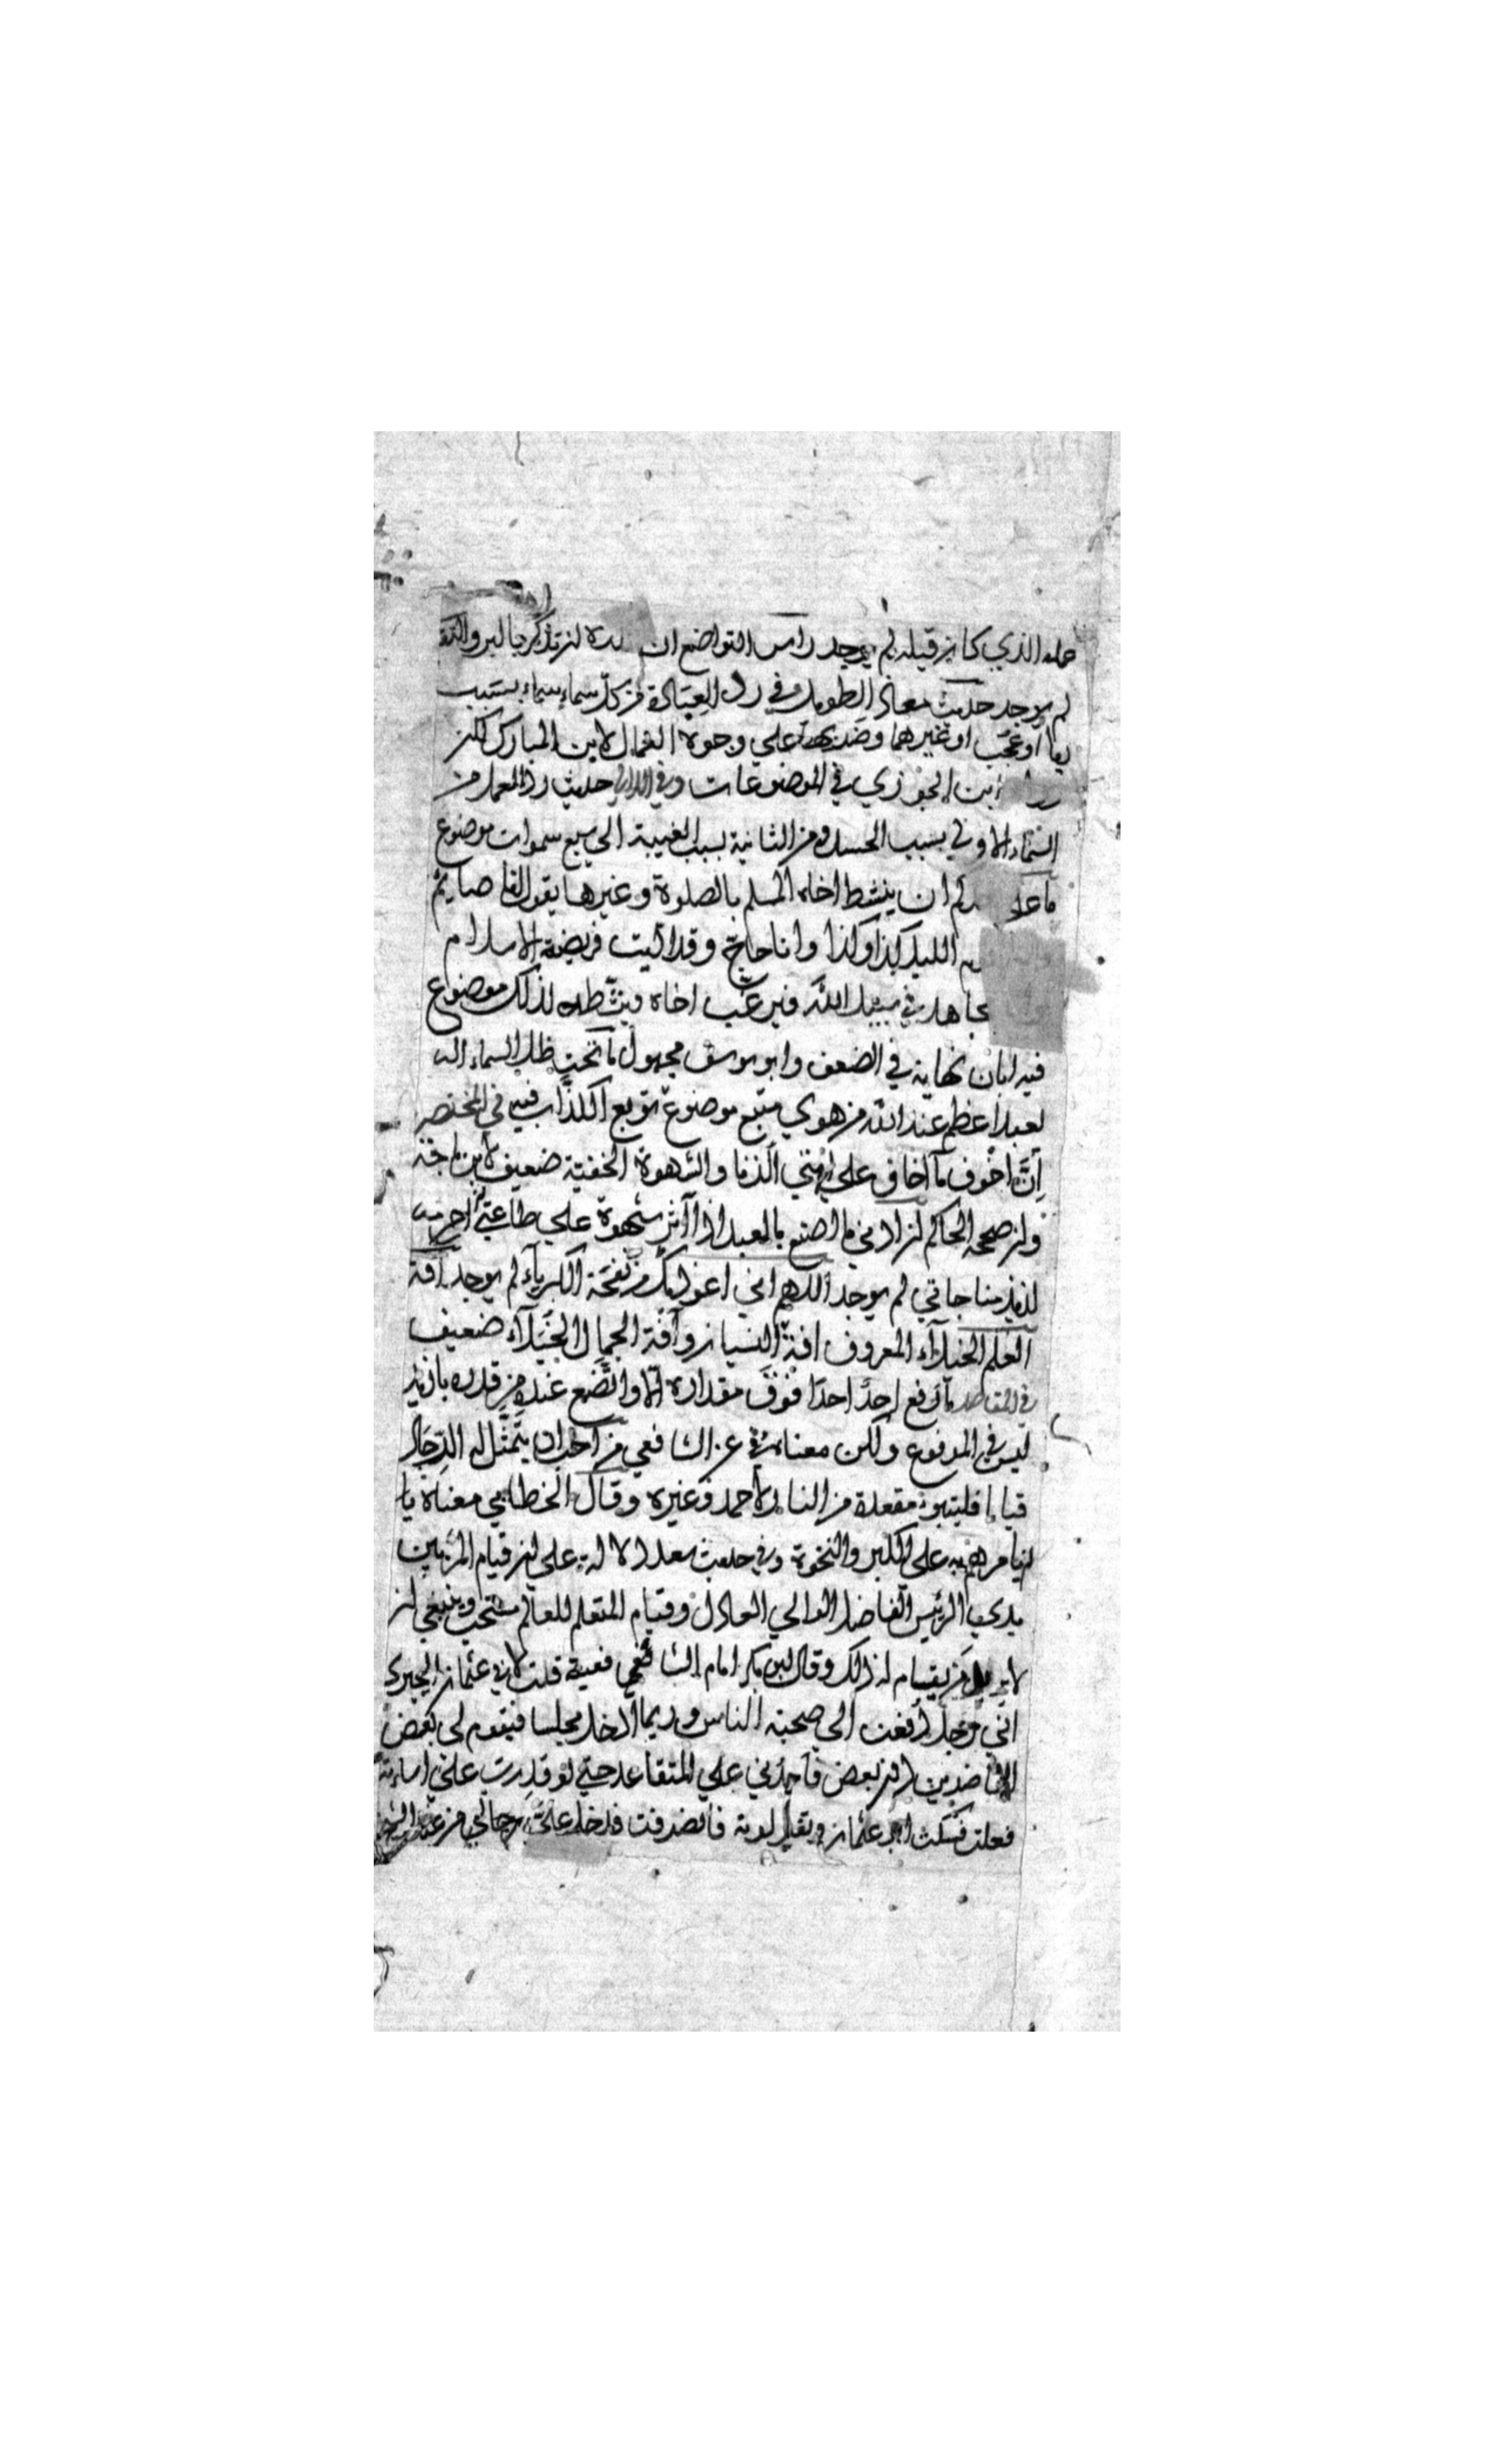 عمله الذي كان قبله لم يوجد راس التواضع ان تكره ان تذكر بالبر والتقوى
لم يوجد حديث معاذ الطويل في رد العبادة من كل سماء سماء بسبب
رياء او عجب او غيرهما وضربها على وجوه العمال لابن المبارك لكن
ابن الجوزي في الموضوعات وفي اللآلي حديث رد العمل من
السماء الاولى بسبب الحسد ومن الثانية بسبب الغيبة الى سبع سموات موضوع
ما على ان ينشط اخاه المسلم بالصلوة وغيرها يقول انا صايم
الليل كذا وكذا وانا حاج وقد اديت فريضة الاسلام
مجاهد في سبيل الله فيرغب اخاه فينشطه لذلك موضوع
فيه ابان نهاية في الضعف وابو يوسف مجهول ما تحت ظل السماء اله
يعبد اعظم عند الله من هوي متبع موضوع توبع الكذاب فيه في المختصر
ان اخوف ما اخاف على امتي الزنا والشهوة الخفية ضعيف لابن ماجة
وان صححه الحاكم ان ادني ما اصنع بالعبد اذا آثر شهوة على طاعتي احرمه
لذيذ مناجاتي لم يوجد اللهم اني اعوذ بك من نفخة الكبرياء لم يوجد آفة
العلم الخيلاء المعروف افة العلم النسيان وآفة الجمال الخيلاء ضعيف
في المقاصد ما رفع احد احدا فوق مقداره الا واتضع عنده من قدره بازيد
ليس في المرفوع ولكن معناه في عن الشافعي من احب ان يتمثل له الرجال
قياما فليتبوء مقعده من النار لاحمد وغيره وقال الخطابي معناه يا
ان يامرهم به على الكبر والنخوة وفي حديث سعد دلالة على ان قيام المرء بين
يدي الرئيس الفاضل الوالي العادل وقيام المتعلم للعالم مستحب وينبغي ان
لا من يقام له ذلك وقال ابن بكر امام الشافعي فعية قلت لابي عثمان الحيري
اني رجل دفعت الى صحبة الناس وربما ادخل مجلسا فيقوم لي بعض
القاصدين دون بعض فاجدني على المتقاعد حتي لو قدرت علي اساءته
فعلت فسكت ابو عثمان وتغير لونه فانصرفت فدخل على رجالي من عند الشيخ